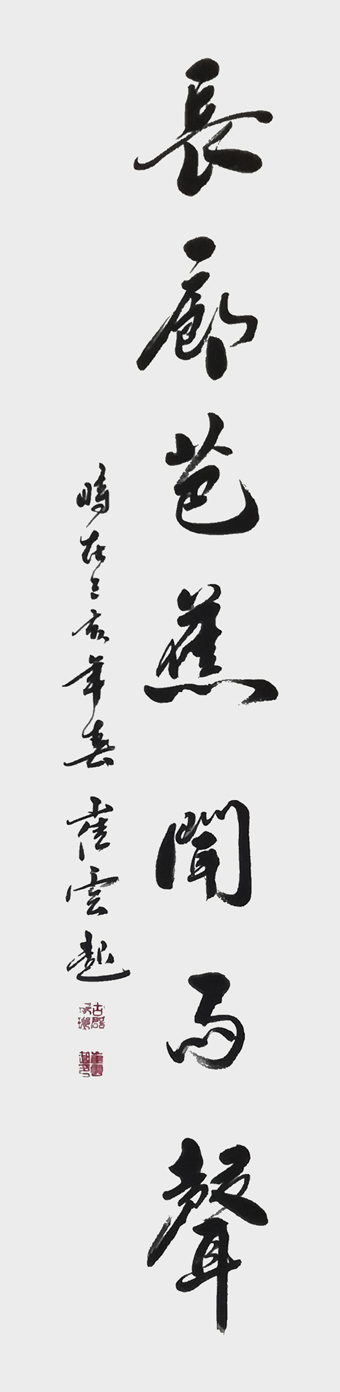 長廊芭蕉聞雨聲
時在己亥年春 崔雲起